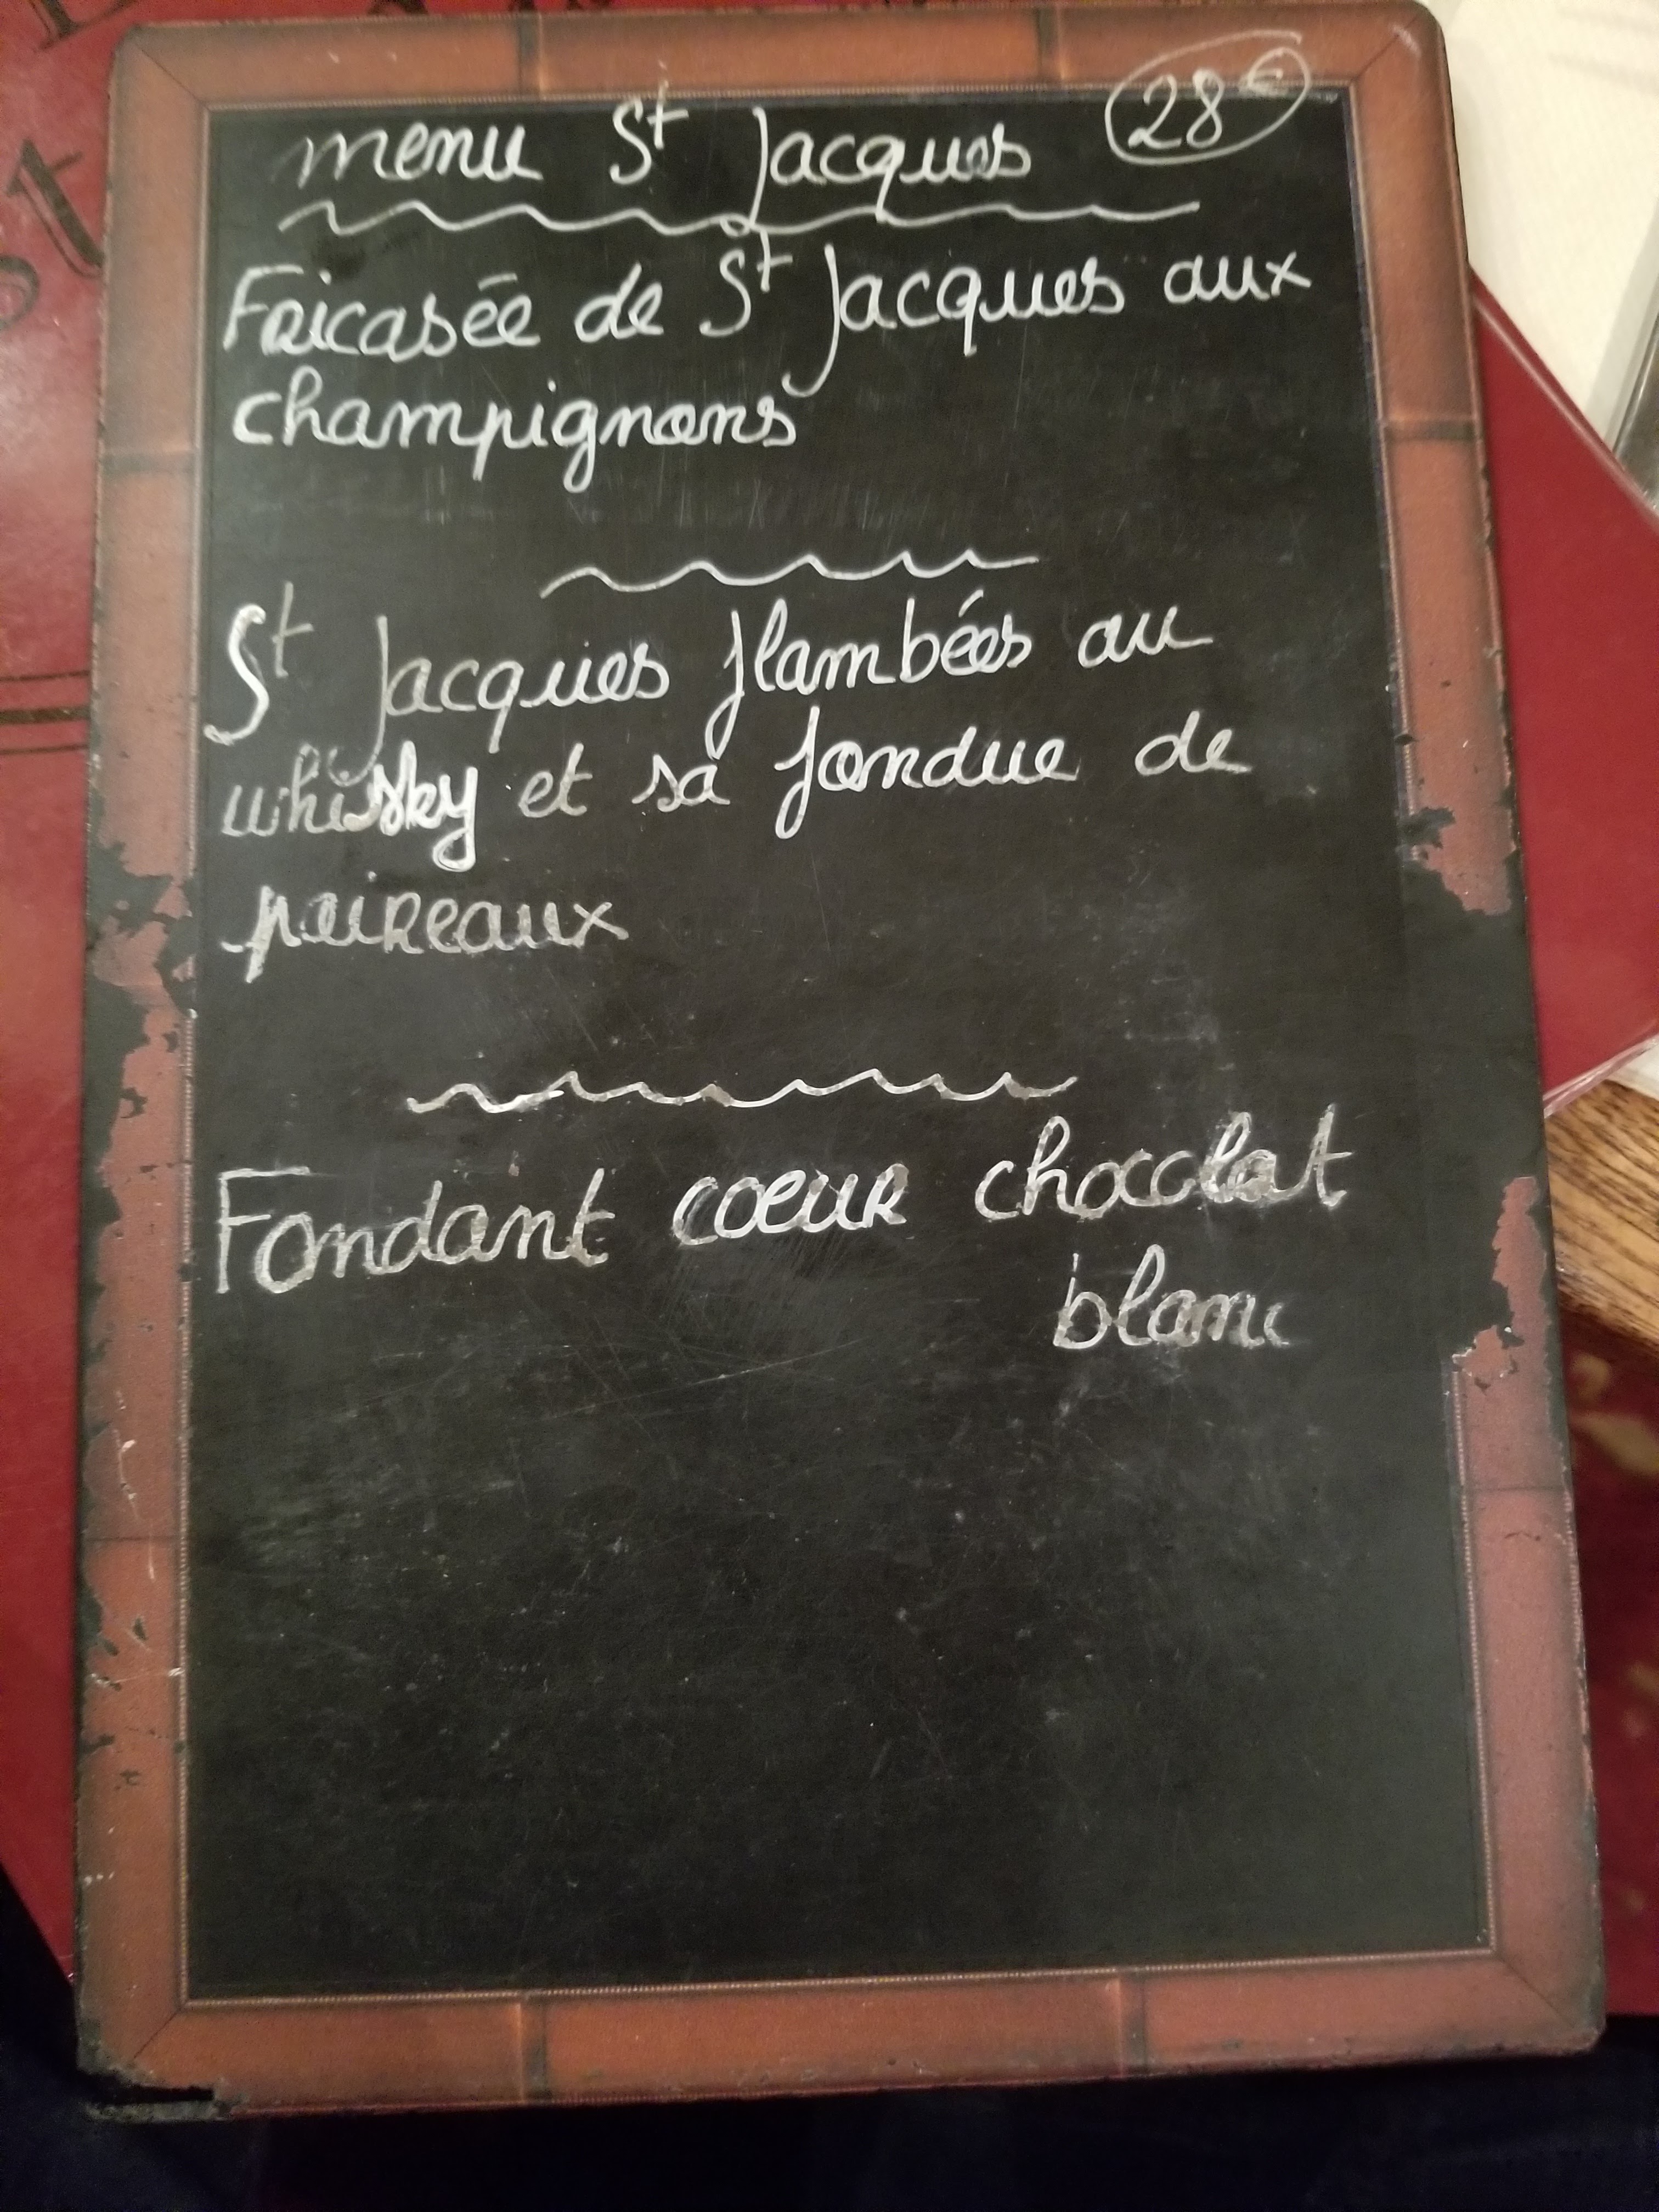 menu St Jacques 28€
Fricasée de St Jacques aux
champignons
St Jacques flambées au
whisky et sa fondue de
poireaux
Fondant coeur chocolat
blanc